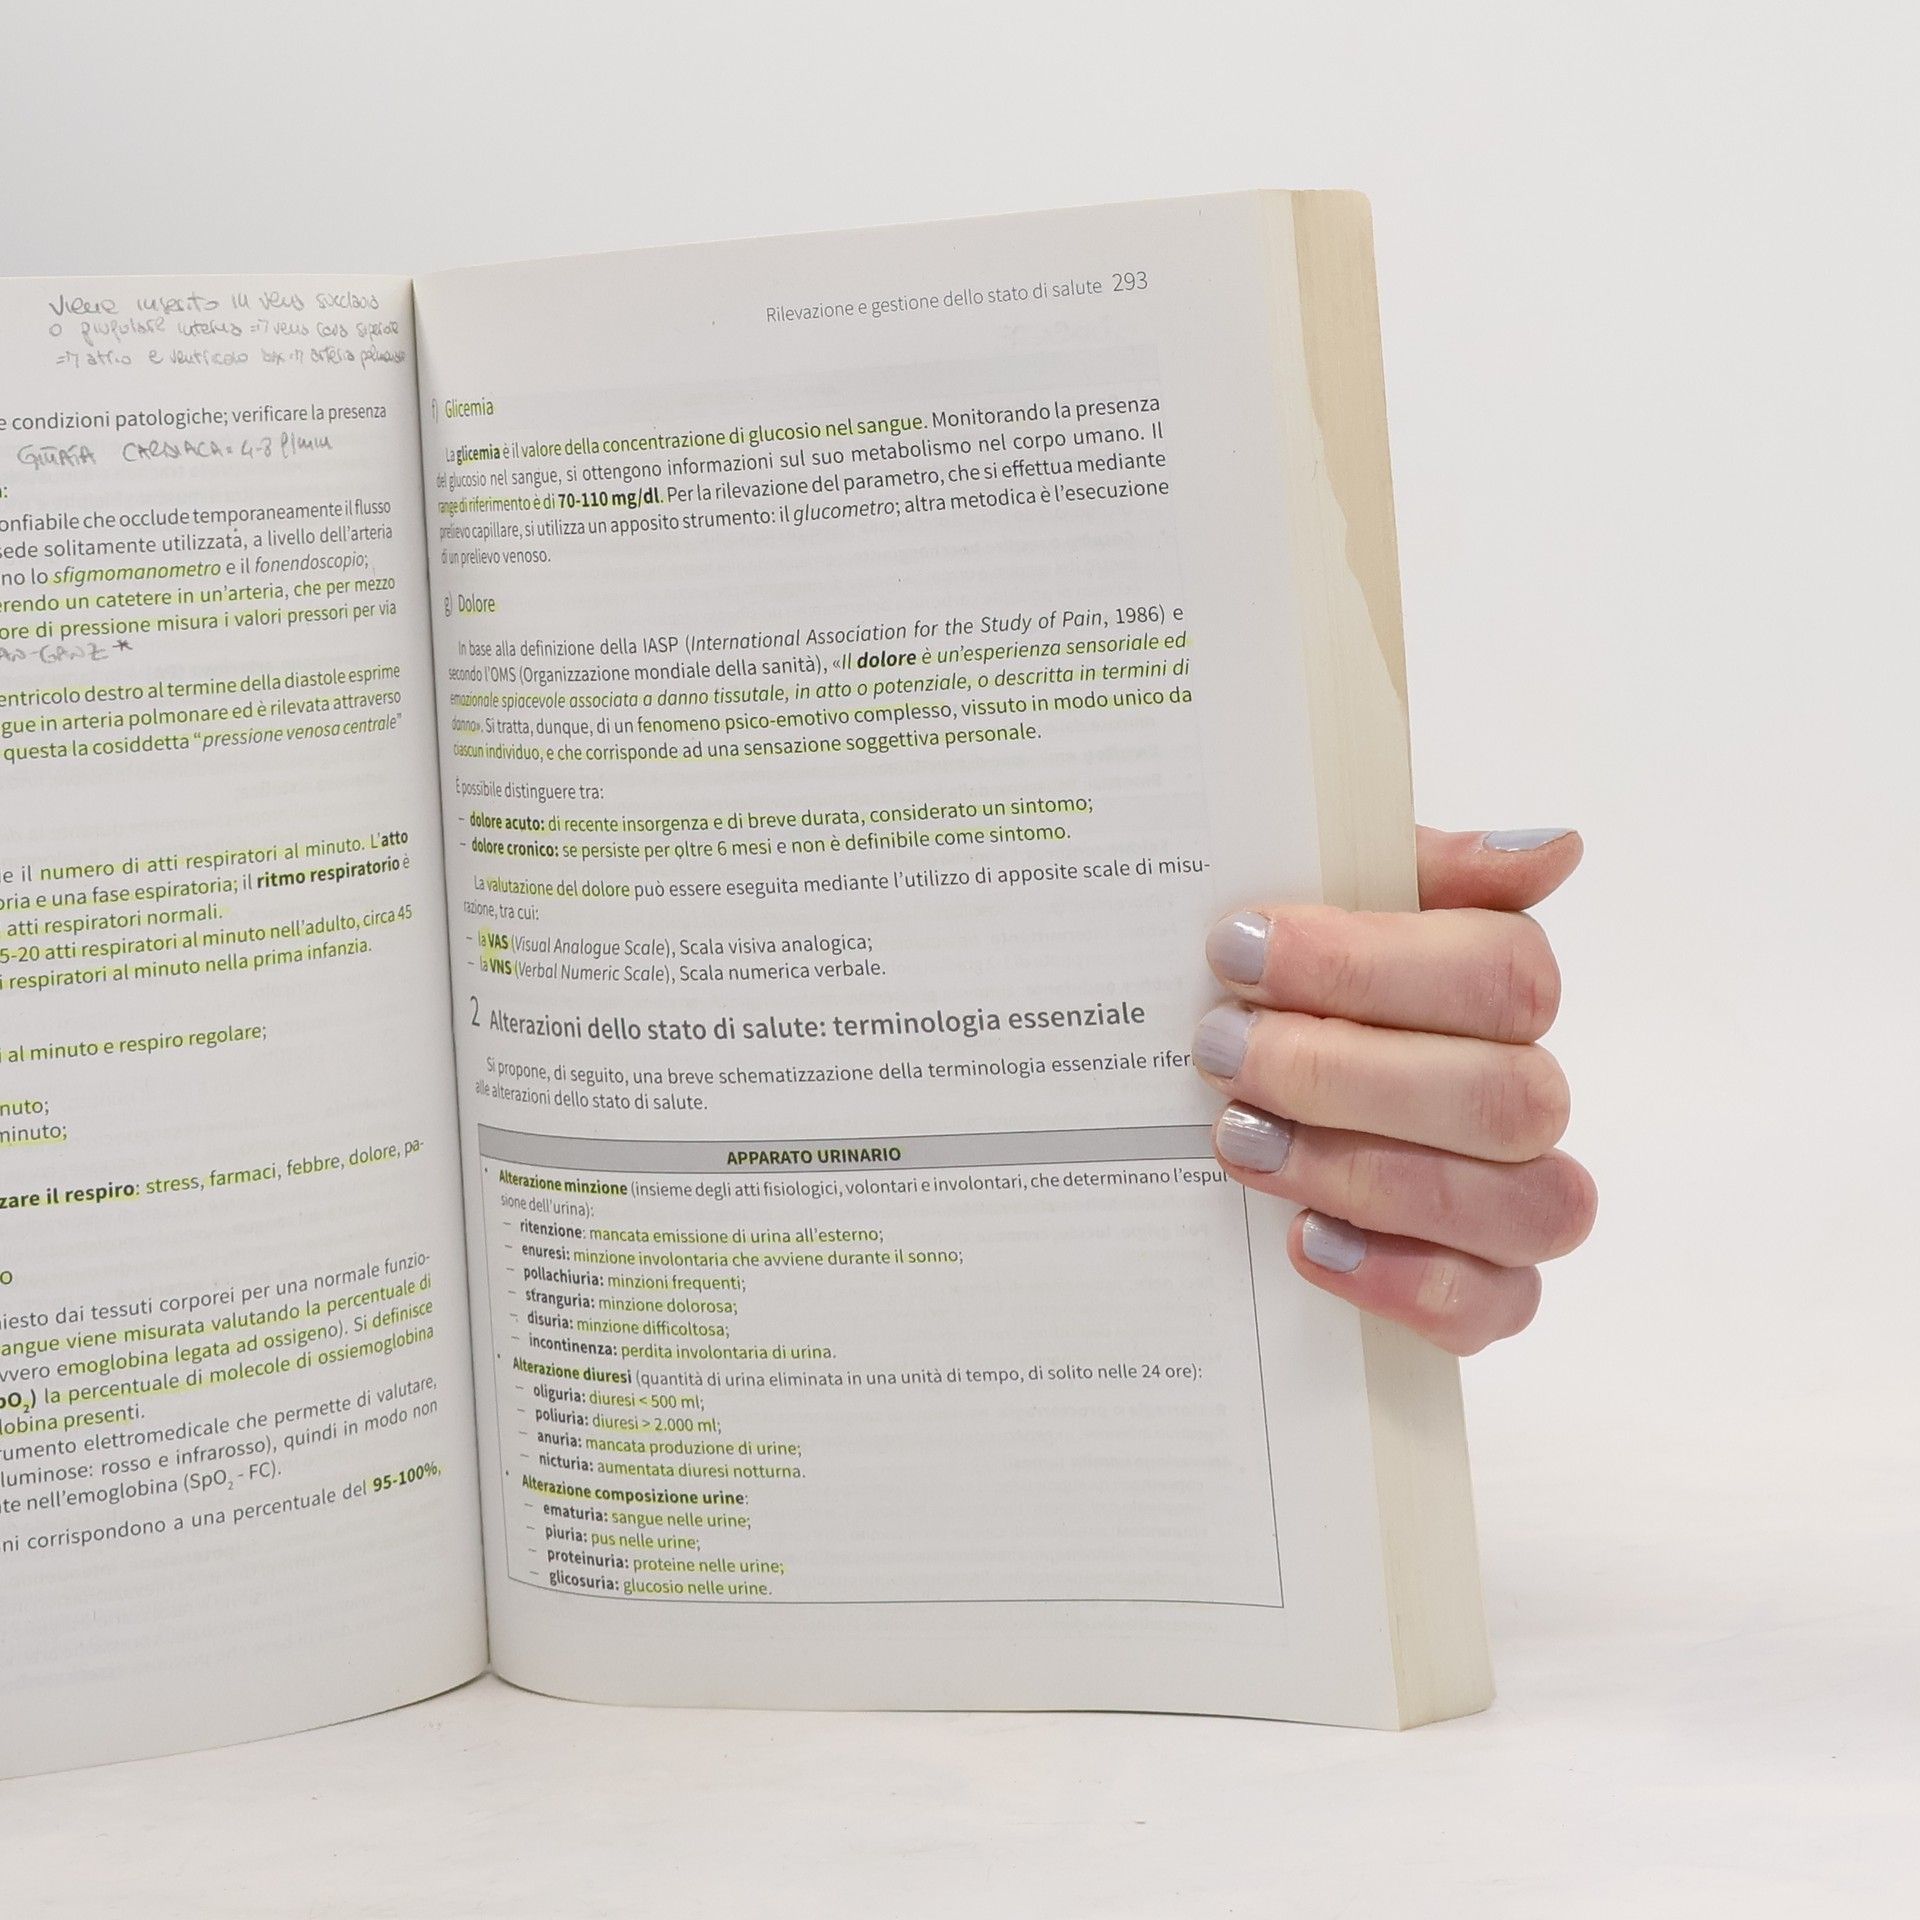 viene inserito in vena succlavia
o giugulare interna => vena cava superiore
=> atrio e ventricolo dx => arteria polmonare
e condizioni patologiche; verificare la presenza
GITTATA CARDIACA = 4-8 l/min
onfiabile che occlude temporaneamente il flusso
sede solitamente utilizzata, a livello dell'arteria
no lo sfigmomanometro e il fonendoscopio;
erendo un catetere in un'arteria, che per mezzo
ore di pressione misura i valori pressori per via
AN-GANZ *
entricolo destro al termine della diastole esprime
gue in arteria polmonare ed è rilevata attraverso
questa la cosiddetta "pressione venosa centrale"
e il numero di atti respiratori al minuto. L'atto
oria e una fase espiratoria; il ritmo respiratorio è
atti respiratori normali.
5-20 atti respiratori al minuto nell'adulto, circa 45
i respiratori al minuto nella prima infanzia.
i al minuto e respiro regolare;
nuto;
minuto;
zare il respiro: stress, farmaci, febbre, dolore, pa-
o
iesto dai tessuti corporei per una normale funzio-
angue viene misurata valutando la percentuale di
vvero emoglobina legata ad ossigeno). Si definisce
pO2) la percentuale di molecole di ossiemoglobina
lobina presenti.
rumento elettromedicale che permette di valutare,
luminose: rosso e infrarosso), quindi in modo non
te nell'emoglobina (SpO2 - FC).
ni corrispondono a una percentuale del 95-100%,
Rilevazione e gestione dello stato di salute 293
f) Glicemia
La glicemia è il valore della concentrazione di glucosio nel sangue. Monitorando la presenza
del glucosio nel sangue, si ottengono informazioni sul suo metabolismo nel corpo umano. Il
range di riferimento è di 70-110 mg/dl. Per la rilevazione del parametro, che si effettua mediante
prelievo capillare, si utilizza un apposito strumento: il glucometro; altra metodica è l'esecuzione
di un prelievo venoso.
g) Dolore
In base alla definizione della IASP (International Association for the Study of Pain, 1986) e
secondo l'OMS (Organizzazione mondiale della sanità), «Il dolore è un'esperienza sensoriale ed
emozionale spiacevole associata a danno tissutale, in atto o potenziale, o descritta in termini di
danno». Si tratta, dunque, di un fenomeno psico-emotivo complesso, vissuto in modo unico da
ciascun individuo, e che corrisponde ad una sensazione soggettiva personale.
È possibile distinguere tra:
– dolore acuto: di recente insorgenza e di breve durata, considerato un sintomo;
– dolore cronico: se persiste per oltre 6 mesi e non è definibile come sintomo.
La valutazione del dolore può essere eseguita mediante l'utilizzo di apposite scale di misu-
razione, tra cui:
– la VAS (Visual Analogue Scale), Scala visiva analogica;
– la VNS (Verbal Numeric Scale), Scala numerica verbale.
2 Alterazioni dello stato di salute: terminologia essenziale
Si propone, di seguito, una breve schematizzazione della terminologia essenziale rifer
alle alterazioni dello stato di salute.
APPARATO URINARIO
• Alterazione minzione (insieme degli atti fisiologici, volontari e involontari, che determinano l'espul
sione dell'urina):
– ritenzione: mancata emissione di urina all'esterno;
– enuresi: minzione involontaria che avviene durante il sonno;
– pollachiuria: minzioni frequenti;
– stranguria: minzione dolorosa;
– disuria: minzione difficoltosa;
– incontinenza: perdita involontaria di urina.
• Alterazione diuresi (quantità di urina eliminata in una unità di tempo, di solito nelle 24 ore):
– oliguria: diuresi < 500 ml;
– poliuria: diuresi > 2.000 ml;
– anuria: mancata produzione di urine;
– nicturia: aumentata diuresi notturna.
• Alterazione composizione urine:
– ematuria: sangue nelle urine;
– piuria: pus nelle urine;
– proteinuria: proteine nelle urine;
– glicosuria: glucosio nelle urine.